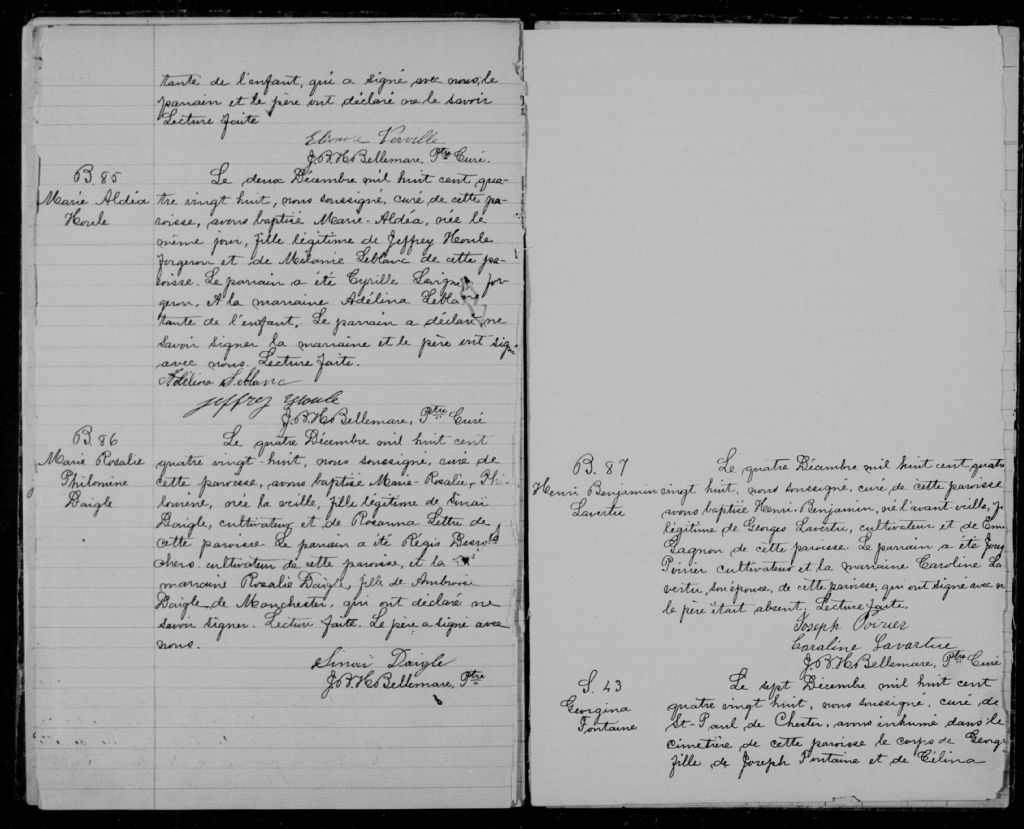 tante de l'enfant, qui a signé avec nous, le
parrain et le père ont déclaré ne le savoir
Lecture faite
Verville
J.B.H. Bellemare, Ptre Curé.
B. 85
Marie Aldéa
Houle
Le deux Décembre mil huit cent qua-
tre vingt huit, nous soussigné, curé de cette pa-
roisse, avons baptisé Marie-Aldéa, née le
même jour, fille légitime de Jeffrey Houle
forgeron et de Mélanie Leblanc de cette pa-
roisse. Le parrain a été Cyrille Lavigne for-
geron, et la marraine Adélina Leblanc
tante de l'enfant. Le parrain a déclaré ne
savoir signer la marraine et le père ont signé
avec nous. Lecture faite.
Adélina Leblanc
Jeffrey Houle
J.B.H. Bellemare, Ptre Curé
B. 86
Marie Rosalie
Philomine
Daigle
Le quatre Décembre mil huit cent
quatre vingt-huit, nous soussigné, curé de
cette paroisse, avons baptisé Marie-Rosalie-Phi-
lomine, née la veille, fille légitime de Sinai
Daigle, cultivateur et de Rosanna Lettre de
cette paroisse. Le parrain a été Régis
cultivateur de cette paroisse, et la
marraine Rosalie Daigle, fille de Ambroise
Daigle de Manchester, qui ont déclaré ne
savoir signer. Lecture faite. Le père a signé avec
nous.
Sinaï Daigle
J.B.H. Bellemare, Ptre
B. 87
Henri Benjamin
Lavertu
Le quatre Décembre mil huit cent quatre
vingt huit, nous soussigné, curé de cette paroisse
avons baptisé Henri-Benjamin, né l'avant-veille, f
légitime de Georges Lavertu, cultivateur et de Em
Gagnon de cette paroisse. Le parrain a été Josep
Poirier cultivateur et la marraine Caroline La
vertu, son épouse, de cette paroisse, qui ont signé avec n
le père était absent. Lecture faite.
Joseph Poirier
Caroline Lavartue
J.B.H. Bellemare, Ptre Curé
S. 43
Georgina
Fontaine
Le sept Décembre mil huit cent
quatre vingt huit, nous soussigné, curé de
St-Paul de Chester, avons inhumé dans le
cimetière de cette paroisse le corps de Georgi
fille de Joseph Fontaine et de Célina